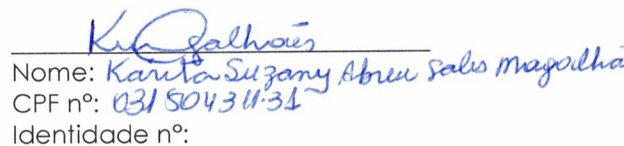 Nome: Karita Suzany Abreu Sales Magalhã
CPF nº: 031504311-31
Identidade nº: